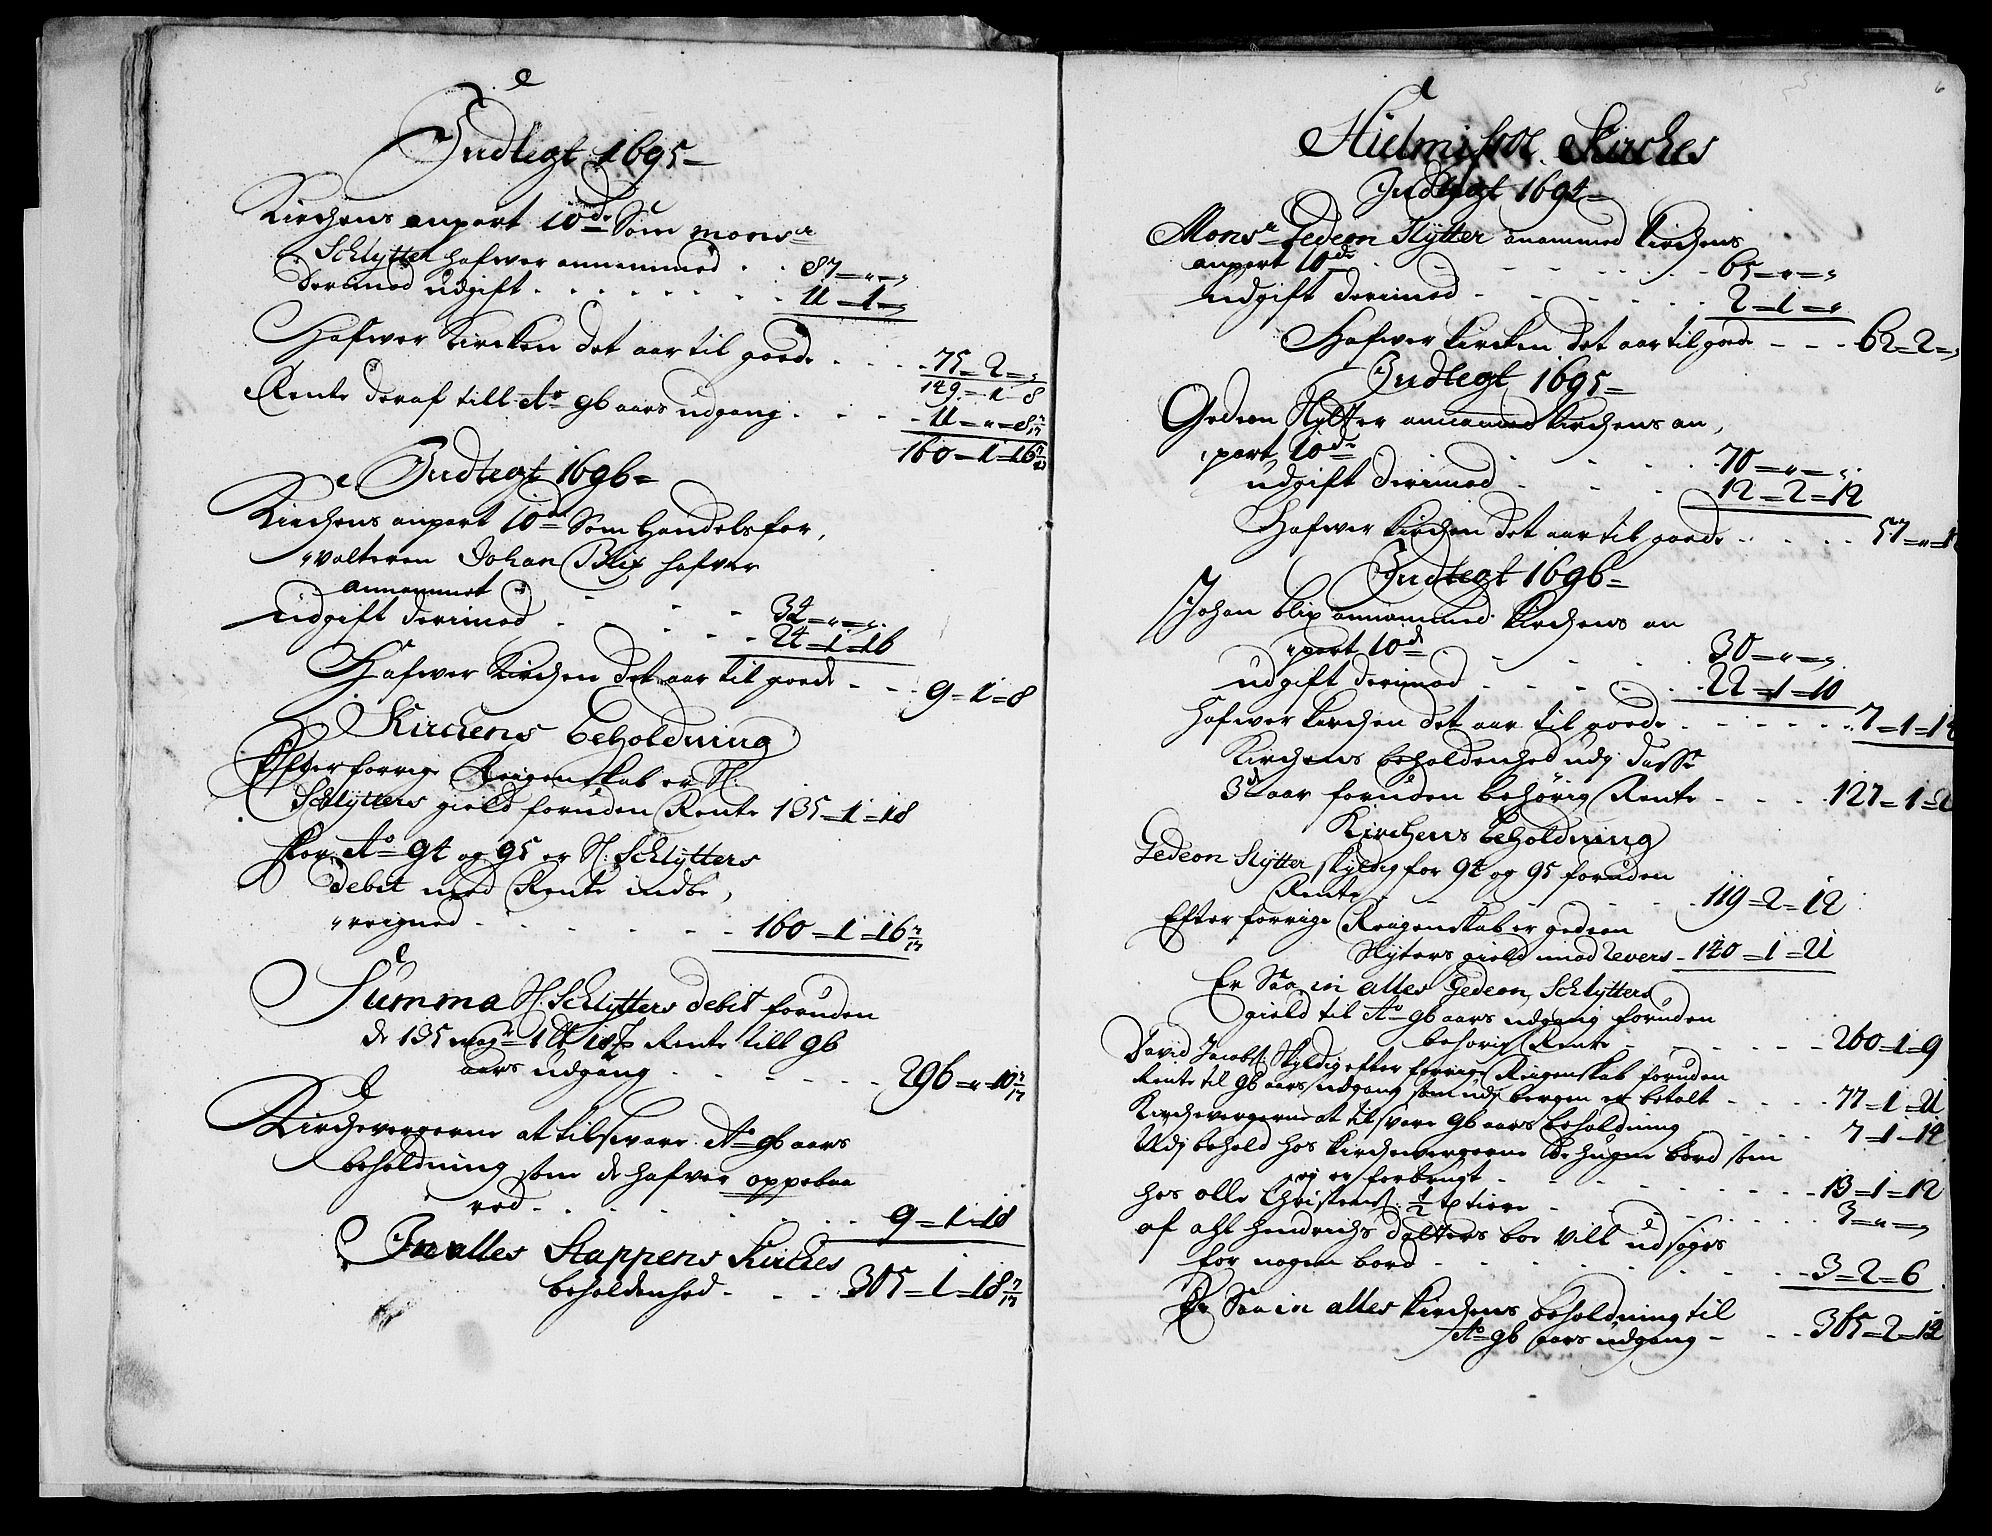 Indtegt 1695
Kirchens anpart 10de Som monsr
Schlytter hafwer annammed . . 87 = " = "
Derimod udgift . . . . . . . 11 = 1 = "
Hafwer Kircken det aar til goede . . . 75 = 2 = "
149 = 1 = 8
Rente deraf till Ao 96 aars udgang . . . 11 = " = 8 7/17
160 = 1 = 16 7/17
Indtegt 1696 =
Kirchens anpart 10de Som Handelsfor,
"valteren Johan Blix hafver
annammet . . . 34 = " = "
udgift derimod . . . 24 = 1 = 16
Hafwer Kirchen det aar til goede . . . 9 = 1 = 8
Kirchens beholdning
Efter forrige Reigenskab er H.
Schlytters gield foruden Rente 135 = 1 = 18
For Ao 94 og 95 er H. Schlytters
debit med Rente indbe,
"reigned . . . . . 160 = 1 = 16 7/17
Summa H. Schlytters debit foruden
de 135 1 18 Rente till 96
aars udgang . . . . . 296 = " = 10 7/17
Kirchevergerne at tilsvare Ao 96 aars
beholdning som de hafver oppebaa
red . . . . . . 9 = 1 = 18
In alles Stappens Kirches
beholdenhed . . . 305 = 1 = 18 7/17
6
Hielmisöe Kirches
Indtegt 1694 =
Monsr Gedeon Slytter anammed Kirchens
anpart 10de . . . . . . 65 = " = "
udgift derimod . . . . . 2 = 1 = "
Hafwer Kircken det aar til goede . . . 62 = 2 = "
Indtegt 1695 =
Gedeon Slytter annammed Kirchens an,
"part 10de . . . . . 70 = " = "
udgift derimod . . . 12 = 2 = 12
Hafwer Kirchen det aar til goede . . . . 57 = " = 12
Indtegt 1696 =
Johan Blix annammed Kirchens an
"part 10de . . . . . 30 = " = "
udgift derimod . . . . . 22 = 1 = 10
hafwer Kirchen det aar til goede . . . . . . 7 = 1 = 14
Kirchens beholdenhed udj disse
3de aar foruden behörig Rente . . . . 127 = 1 = 2
Kirchens beholdning
Gedeon Slytter skyldig for 94 og 95 foruden
Rente . . . . . . 119 = 2 = 12
Efter forrige Reigenskab er gedeon
Slyters gield imod Revers . 140 = 1 = 21
Er Saa in alles Gedeon Schlytters
gield til Ao 96 aars udgang foruden
behörig Rente . . . . . . 260 = 1 = 9
David Jacobs. skyldig efter forrige Reigenskab foruden
Rente til 96 aars udgang som udj bergen er betalt . . . . 77 = 1 = 21
Kirchevergerne at tilsvare 96 aars beholdning . . . 7 = 1 = 14
Udj behold hos Kirchevergerne de hugne bord som
ej er forbrugt . . . . . . . . 13 = 1 = 12
hos olle Christens. 1/2 tiere . . . . . . . . 3 = " = "
af Hendrichs dötters boe vilt udsöges
for nogen bord . . . . . . . . 3 = 2 = 6
Er Saa in alles Kirchens beholdning til
Ao 96 aars udgang . . . 365 = 2 = 14